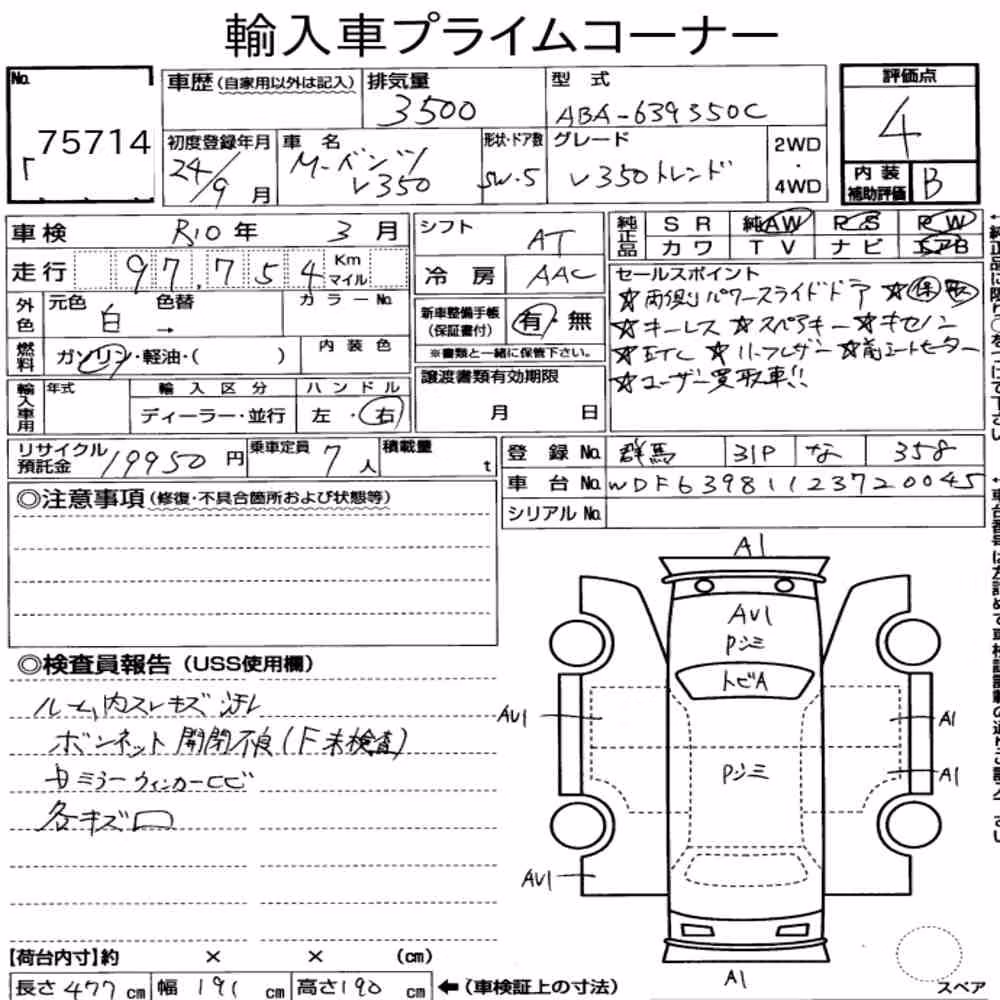 輸入車プライムコーナー
No. 75714
車歴(自家用以外は記入)
排気量 3500
型式 ABA-639350C
評価点 4
初度登録年月 24/9月
車名 M-ベンツ V350
形状・ドア数 SW・5
グレード V350トレンド
2WD・4WD
内装補助評価 B
車検 R10年 3月
シフト AT
純正品 SR 純AW RS PW
カワ TV ナビ エアB
走行 97,754 Km マイル
冷房 AAC
セールスポイント
☆両側パワースライドドア ☆保取
☆キーレス ☆スペアキー ☆キセノン
☆ETC ☆リーフレザー ☆前シートヒーター
☆ユーザー買取車!!
外色 元色 白 色替 → カラーNo.
新車整備手帳(保証書付) 有・無
※書類と一緒に保管下さい。
燃料 ガソリン・軽油・( ) 内装色
譲渡書類有効期限
月 日
輸入車用 年式 輸入区分 ハンドル
ディーラー・並行 左・右
リサイクル預託金 19950円
乗車定員 7人
積載量 t
登録No. 群馬 31P な 358
車台No. WDF63981123720045
シリアルNo.
◎注意事項(修復・不具合箇所および状態等)
◎検査員報告(USS使用欄)
ルーム内スレキズ汚レ
ボンネット開閉不良(F未検査)
ミラーウィンカーヒビ
各キズ凹
A1
AU1
Pジミ
トビA
AU1
A1
Pジミ
A1
AU1
A1
スペア
【荷台内寸】約 × × (cm)
長さ 477cm 幅 191cm 高さ190cm ←(車検証上の寸法)